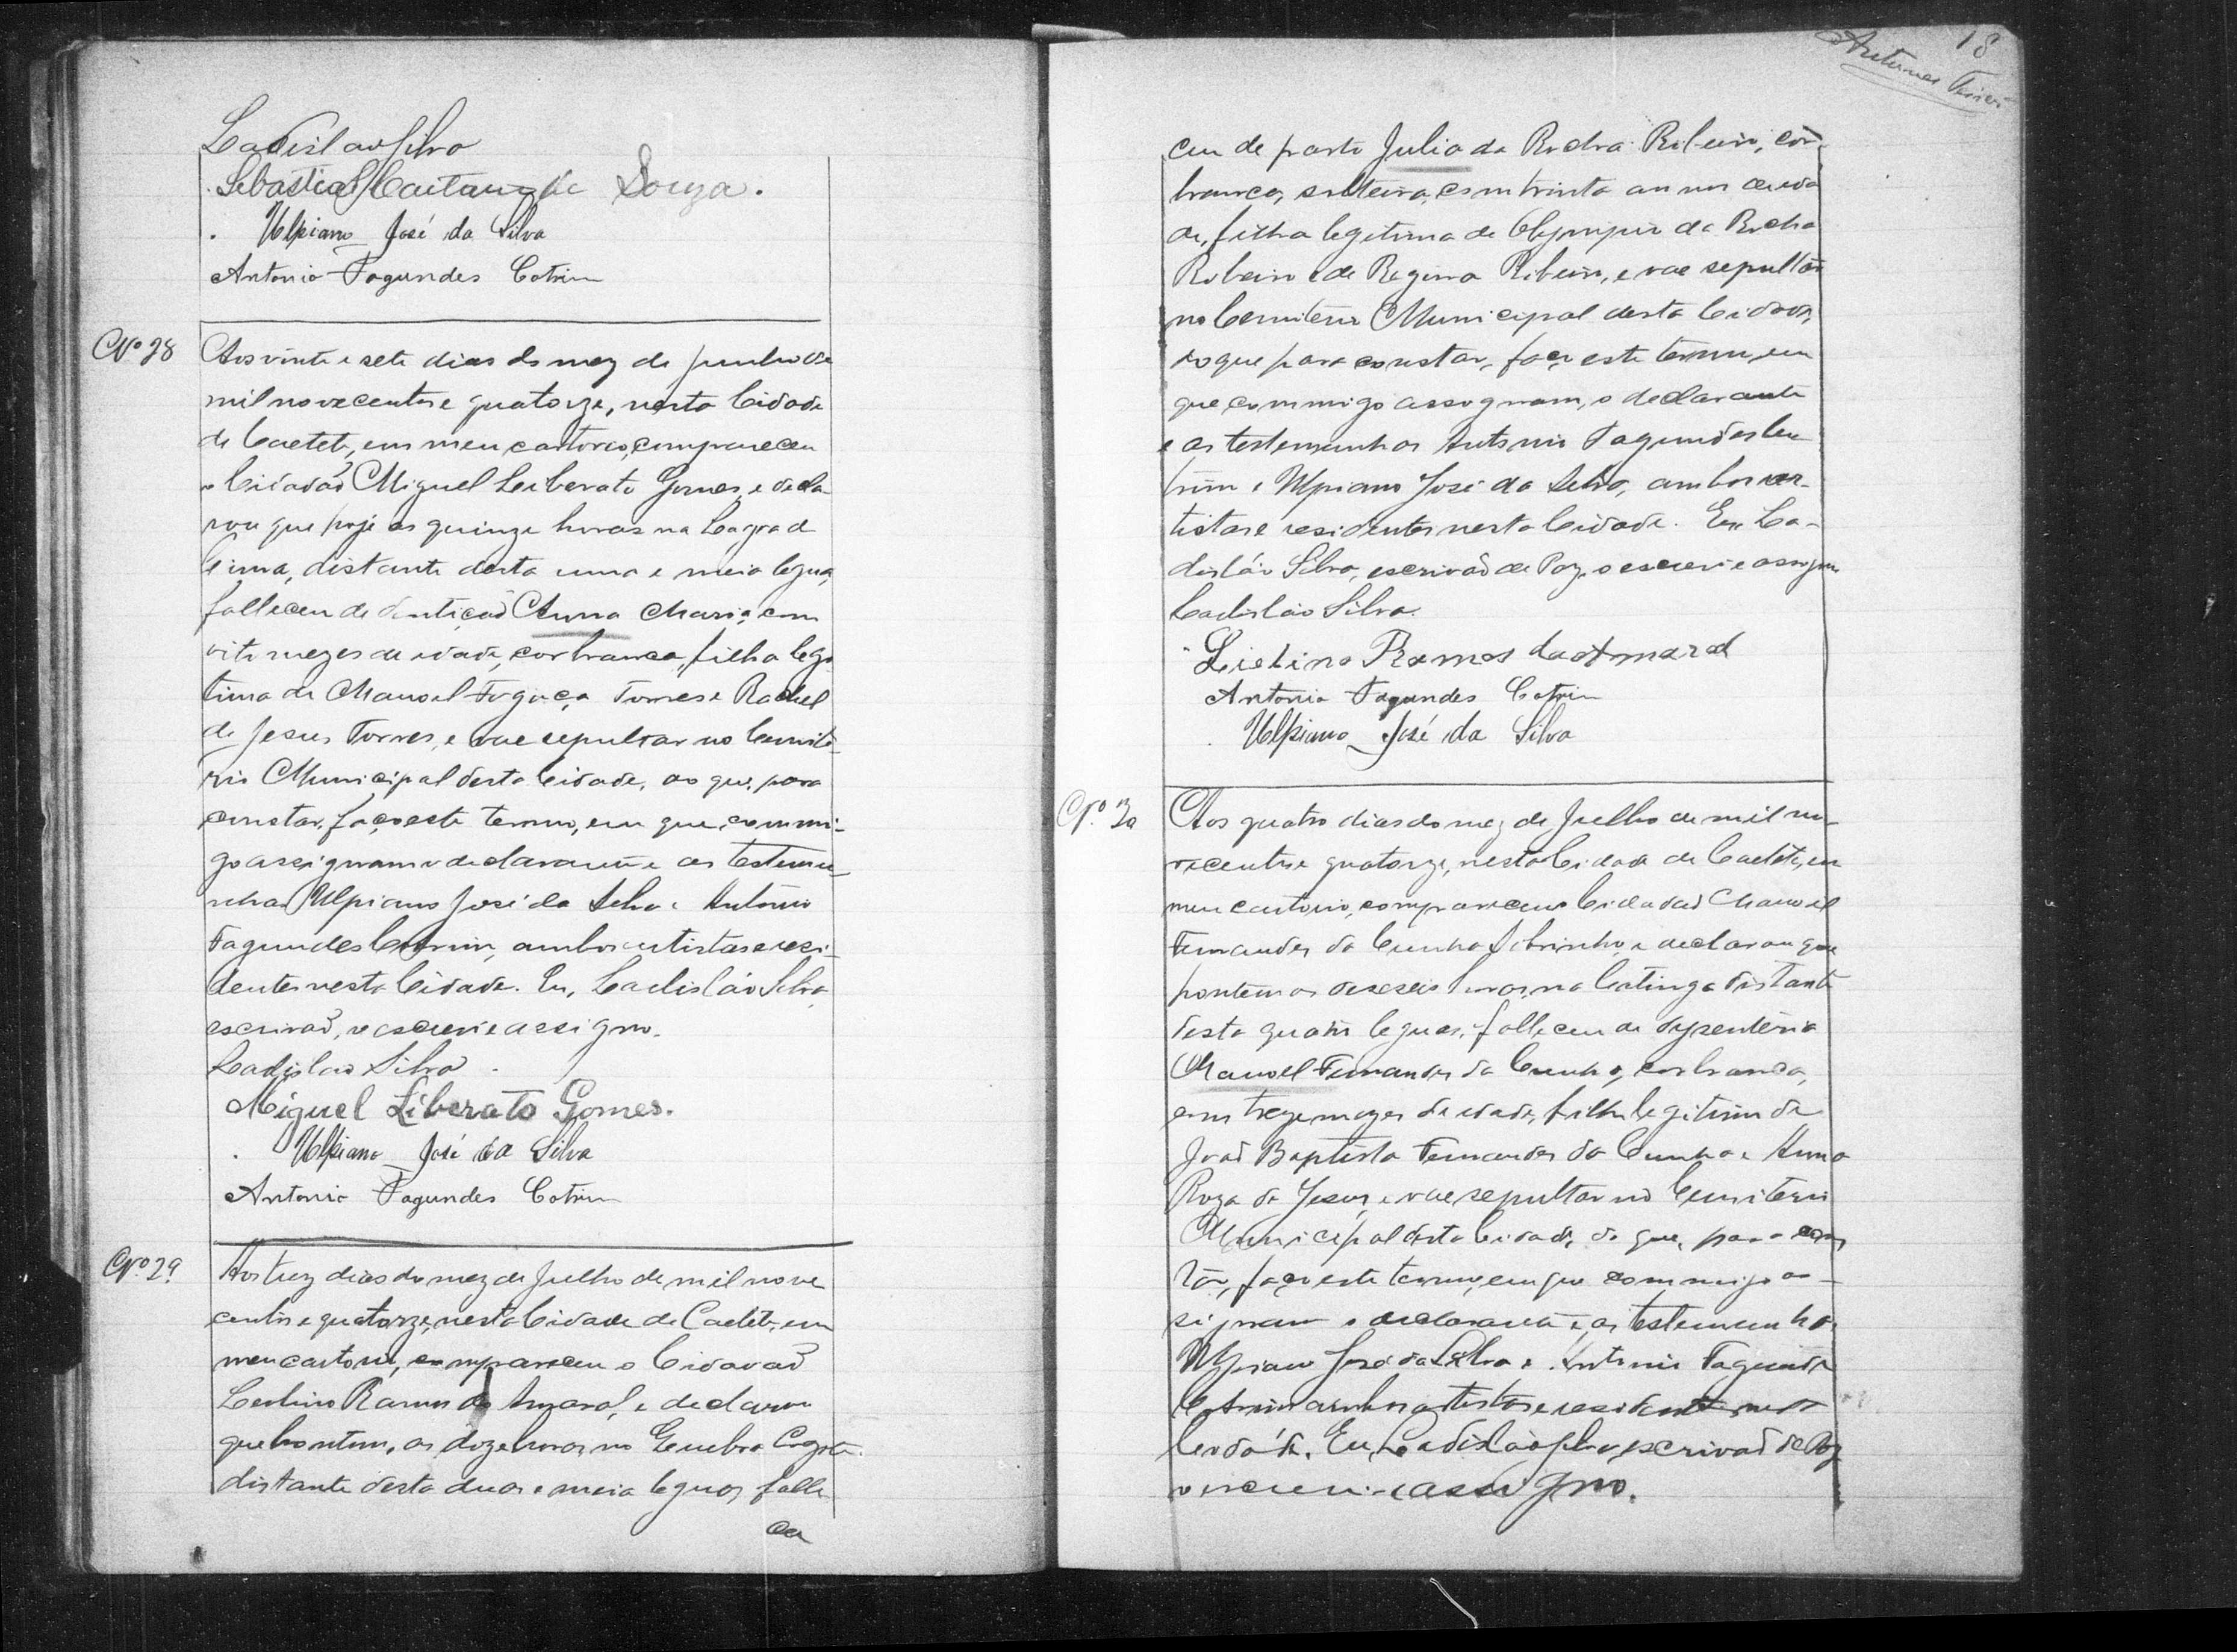 Ladislao Silva
Sebastião Caetano de Souza.
Ulpiano José da Silva
Antonio Fagundes Cotrim
Nº 28
Aos vinte e sete dias do mez de junho de
mil novecentos e quatorze, nesta Cidade
de Caeteté, em meu cartorio, compareceu
o Cidadão Miguel Leiberato Gomes, e decla-
rou que hoje as quinze horas na Lagoa de
Cima, distante desta uma e meia legua,
falleceu de dentição Anna Maria, com
oito mezes de idade, cor branca, filha legi
tima de Manoel Fogaça Torres e Rachel
de Jesus Torres, e vae sepultar no Cemite-
rio Municipal desta Cidade, do que, para
constar, faço este termo, em que, commi-
go assignam o declarante e as testemu-
nhas Ulpiano José da Silva e Antonio
Fagundes Cotrim, ambos artistas e resi-
dentes nesta Cidade. Eu, Ladisláo Silva,
escrivão, o escrevi e assigno.
Ladislao Silva
Miguel Liberato Gomes.
Ulpiano José da Silva
Antonio Fagundes Cotrim
Nº 29
Aos trez dias do mez de Julho de mil nove
centos e quatorze, nesta Cidade de Caeteté, em
meu cartorio, compareceu o Cidadão
Leolino Ramos do Amaral, e declarou
que hontem, as doze horas, no
distante desta duas e meia leguas, falle
ceu
18
Antunes
ceu de parto Julia da Rocha Ribeiro, côr
branca, solteira, com trinta annos de ida
de, filha legitima de Olympio da Rocha
Ribeiro e de Regina Ribeiro, e vae sepultar
no Cemiterio Municipal desta Cidade,
do que para constar, faço este termo, em
que, commigo assognam, o declarante
e as testemunhas Antonio Fagundes Co
trim e Ulpiano José da Silva, ambos ar-
tistas e residentes nesta Cidade. Eu La-
disláo Silva, escrivão de Paz, o escrevi e assigno
Ladisláo Silva.
Liolino Ramos do Amaral
Antonio Fagundes Cotrim
Ulpiano José da Silva
Nº 30
Aos quatro dias do mez de Julho de mil no-
vecentos e quatorze, nesta Cidade de Caeteté, em
meu cartorio, compareceu o Cidadão Manoel
Fernandes da Cunha Sobrinho, e declarou que
hontem as deseseis horas, na Catinga distante
desta quatro leguas, falleceu de dysenteria
Manoel Fernandes da Cunha, cor branca,
com treze mezes de idade, filho legitimo de
João Baptista Fernandes da Cunha e Anna
Roza de Jesus, e vae sepultar no Cemiterio
Municipal desta Cidade, do que, para cons
tar, faço este termo, em que commigo as-
signam o declarante e as testemunhas
Ulpiano José da Silva e Antonio Fagundes
Cotrim ambos artistas e residentes nesta
Cidade. Eu, Ladisláo Silva, escrivão de Paz
o escrevi e assigno.